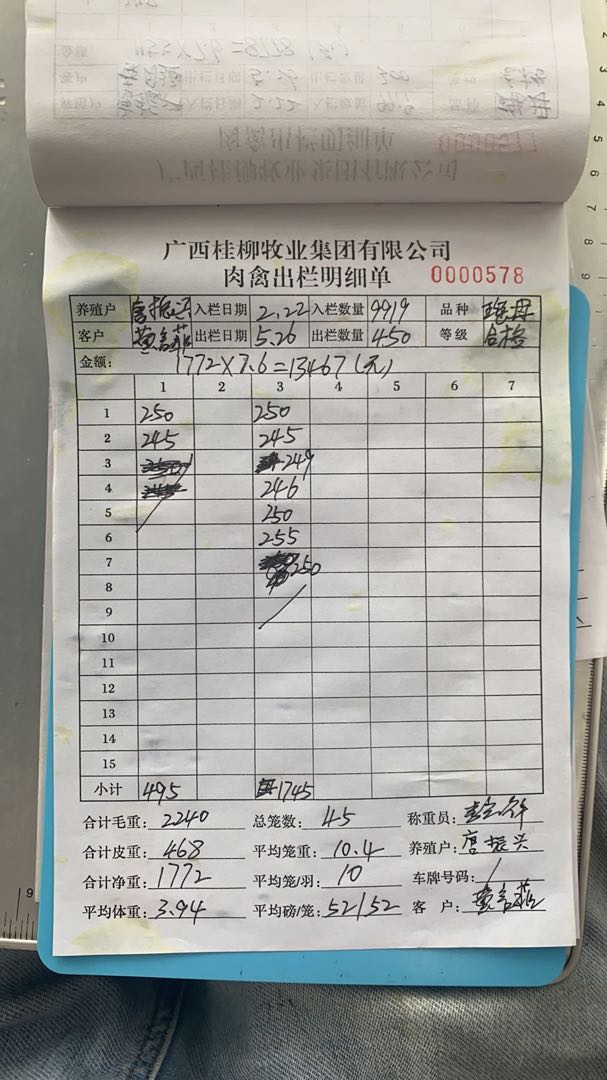 广西桂柳牧业集团有限公司
肉禽出栏明细单 0000578
养殖户 唐振兴 入栏日期 2.22 入栏数量 9919 品种
客户 出栏日期 5.26 出栏数量 450 等级 合格
金额: 1772×7.6=13467(元)
1 2 3 4 5 6 7
1 250 250
2 245 245
3 249
4 246
5 250
6 255
7 250
8
9
10
11
12
13
14
15
小计 495 1745
合计毛重: 2240 总笼数: 45 称重员:
合计皮重: 468 平均笼重: 10.4 养殖户: 唐振兴
合计净重: 1772 平均笼/羽: 10 车牌号码: /
平均体重: 3.94 平均磅/笼: 52/52 客 户: